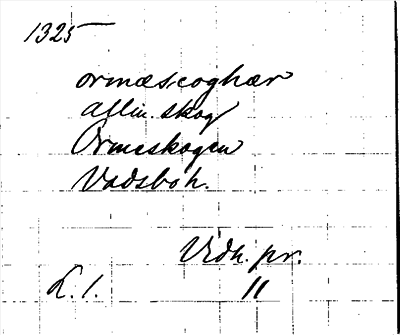 1325
ormæscoghær
allm. skog
Ormeskogen
Vadsbo h.
Vidh. pr.
L. 1. 11